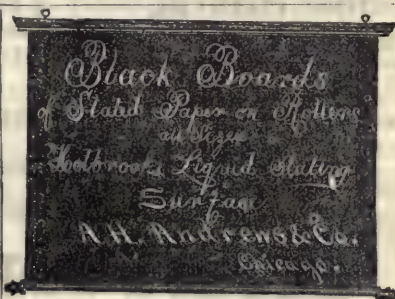 Black Boards
of Slated Paper on Rollers
all Sizes
Holbrook's Liquid Slating
Surface
A.H. Andrews & Co.
Chicago.